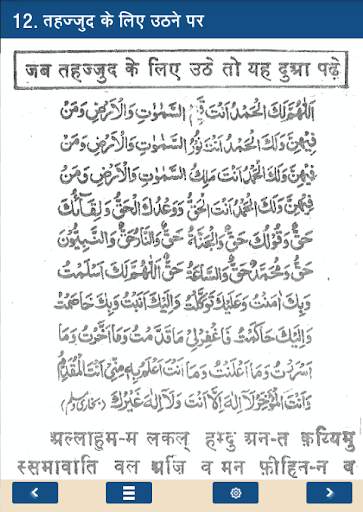 12. तहज्जुद के लिए उठने पर
जब तहज्जुद के लिए उठे तो यह दुआ पढ़े
اَللّٰهُمَّ لَكَ الْحَمْدُ اَنْتَ قَيِّمُ السَّمٰوٰتِ وَالْاَرْضِ وَمَنْ
فِيْهِنَّ وَلَكَ الْحَمْدُ اَنْتَ نُوْرُ السَّمٰوٰتِ وَالْاَرْضِ وَمَنْ
فِيْهِنَّ وَلَكَ الْحَمْدُ اَنْتَ مَلِكُ السَّمٰوٰتِ وَالْاَرْضِ وَمَنْ
فِيْهِنَّ وَلَكَ الْحَمْدُ اَنْتَ الْحَقُّ وَوَعْدُكَ الْحَقُّ وَلِقَآئُكَ
حَقٌّ وَقَوْلُكَ حَقٌّ وَالْجَنَّةُ حَقٌّ وَالنَّارُ حَقٌّ وَالنَّبِيُّوْنَ
حَقٌّ وَمُحَمَّدٌ حَقٌّ وَالسَّاعَةُ حَقٌّ اَللّٰهُمَّ لَكَ اَسْلَمْتُ
وَبِكَ اٰمَنْتُ وَعَلَيْكَ تَوَكَّلْتُ وَاِلَيْكَ اَنَبْتُ وَبِكَ خَاصَمْتُ
وَاِلَيْكَ حَاكَمْتُ فَاغْفِرْلِيْ مَا قَدَّمْتُ وَمَا اَخَّرْتُ وَمَا
اَسْرَرْتُ وَمَا اَعْلَنْتُ وَمَا اَنْتَ اَعْلَمُ بِهٖ مِنِّيْ اَنْتَ الْمُقَدِّمُ
وَاَنْتَ الْمُؤَخِّرُ لَا اِلٰهَ اِلَّا اَنْتَ وَلَا اِلٰهَ غَيْرُكَ (بخاری ومسلم)
अल्लाहुम-म लकल् हम्दु अन-त क़य्यिमु
स्समावाति वल अर्जि व मन फ़ीहिन-न व